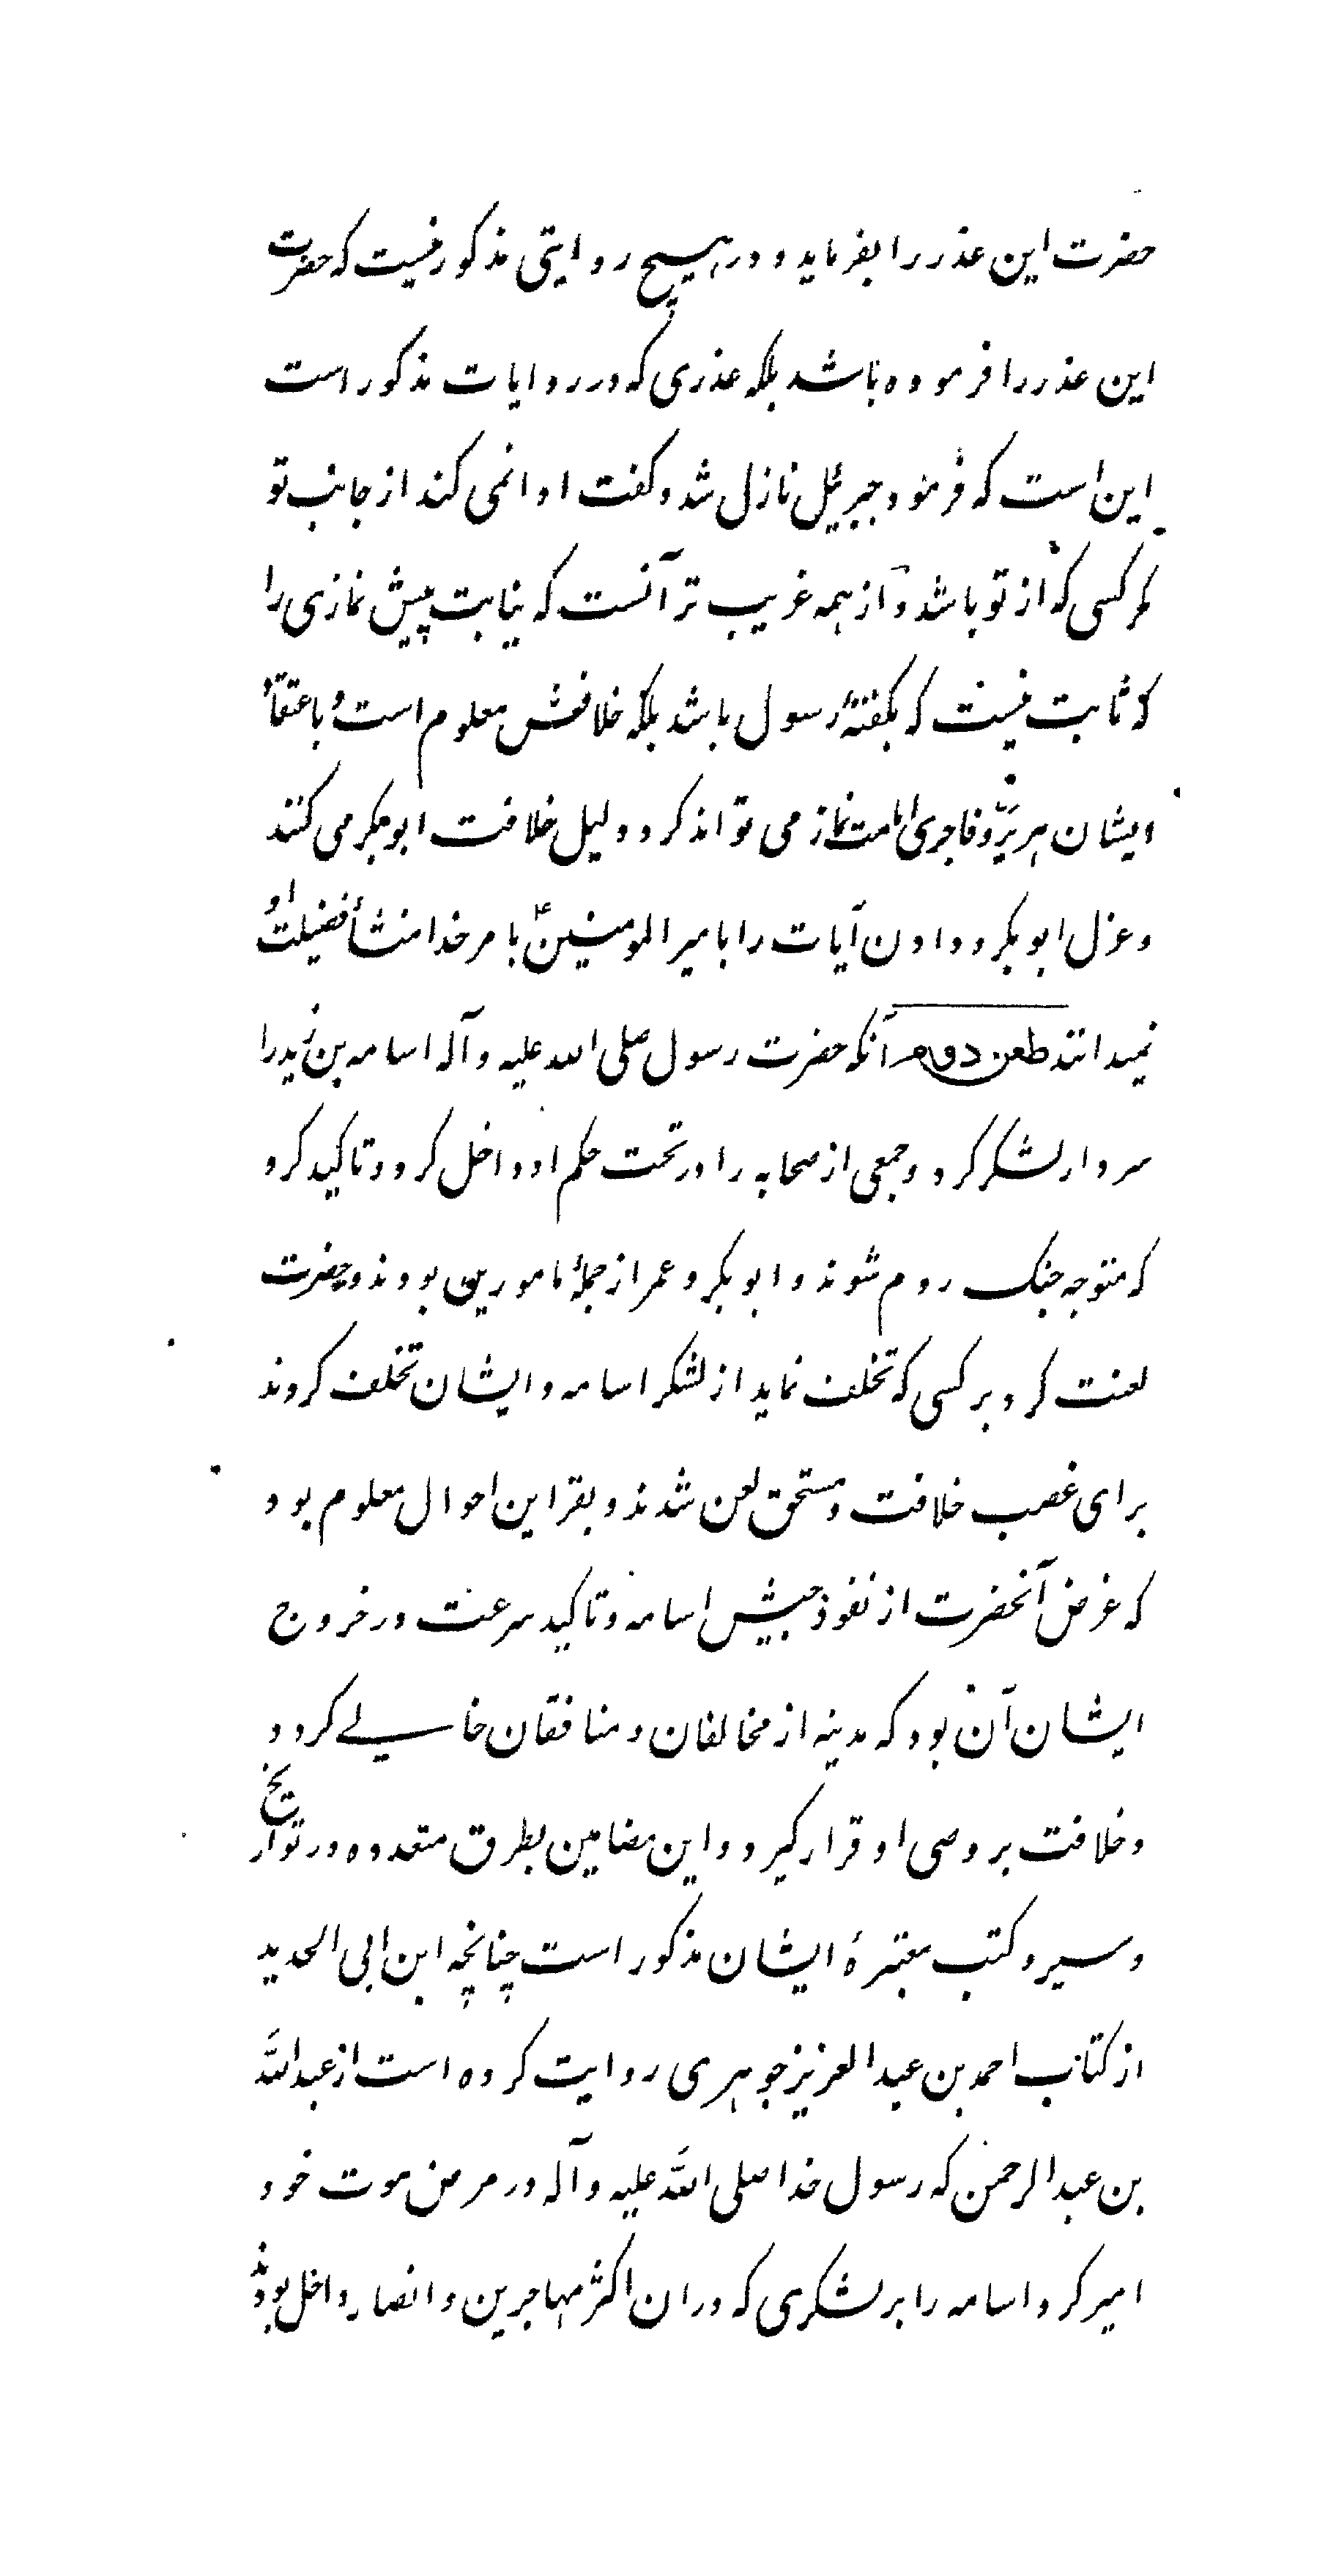 حضرت این عذر را بفرماید و در هیچ روایتی مذکور نیست که حضرت
این عذر را فرموده باشد بلکه عذری که در روایات مذکور است
این است که فرمود جبرئیل نازل شد و کفت ادا نمی کند از جانب تو
مکر کسی که از تو باشد و از همه غریب تر آنست که نیابت پیش نمازی را
که ثابت نیست که بکفتۀ رسول باشد بلکه خلافش معلوم است و باعتقاد
ایشان هر برّ و فاجری امامت نماز می تواند کرد دلیل خلافت ابوبکر می کنند
و عزل ابوبکر و دادن آیات را بامیرالمومنینؑ بامر خدا منشأ فضیلت او
نمیدانند طعن دوم آنکه حضرت رسول صلی الله علیه و آله اسامه بن زید را
سردار لشکر کرد و جمعی از صحابه را در تحت حکم او داخل کرد و تاکید کرد
که متوجه جنک روم شوند و ابوبکر و عمر از جملۀ مامورین بودند و حضرت
لعنت کرد بر کسی که تخلف نماید از لشکر اسامه و ایشان تخلف کردند
برای غصب خلافت و مستحق لعن شدند و بقراین احوال معلوم بود
که غرض آنحضرت از نفوذ جیش اسامه و تاکید سرعت در خروج
ایشان آن بود که مدینه از مخالفان و منافقان خالے کردد
و خلافت بر وصی او قرار کیرد و این مضامین بطرق متعدده در تواریخ
و سیر و کتب معتبرۀ ایشان مذکور است چنانچه ابن ابی الحدید
از کتاب احمد بن عبد العزیز جوهری روایت کرده است از عبد اللّه
بن عبد الرحمن که رسول خدا صلی اللّه علیه و آله در مرض موت خود
امیر کرد اسامه را بر لشکری که در ان اکثر مهاجرین و انصار داخل بودند